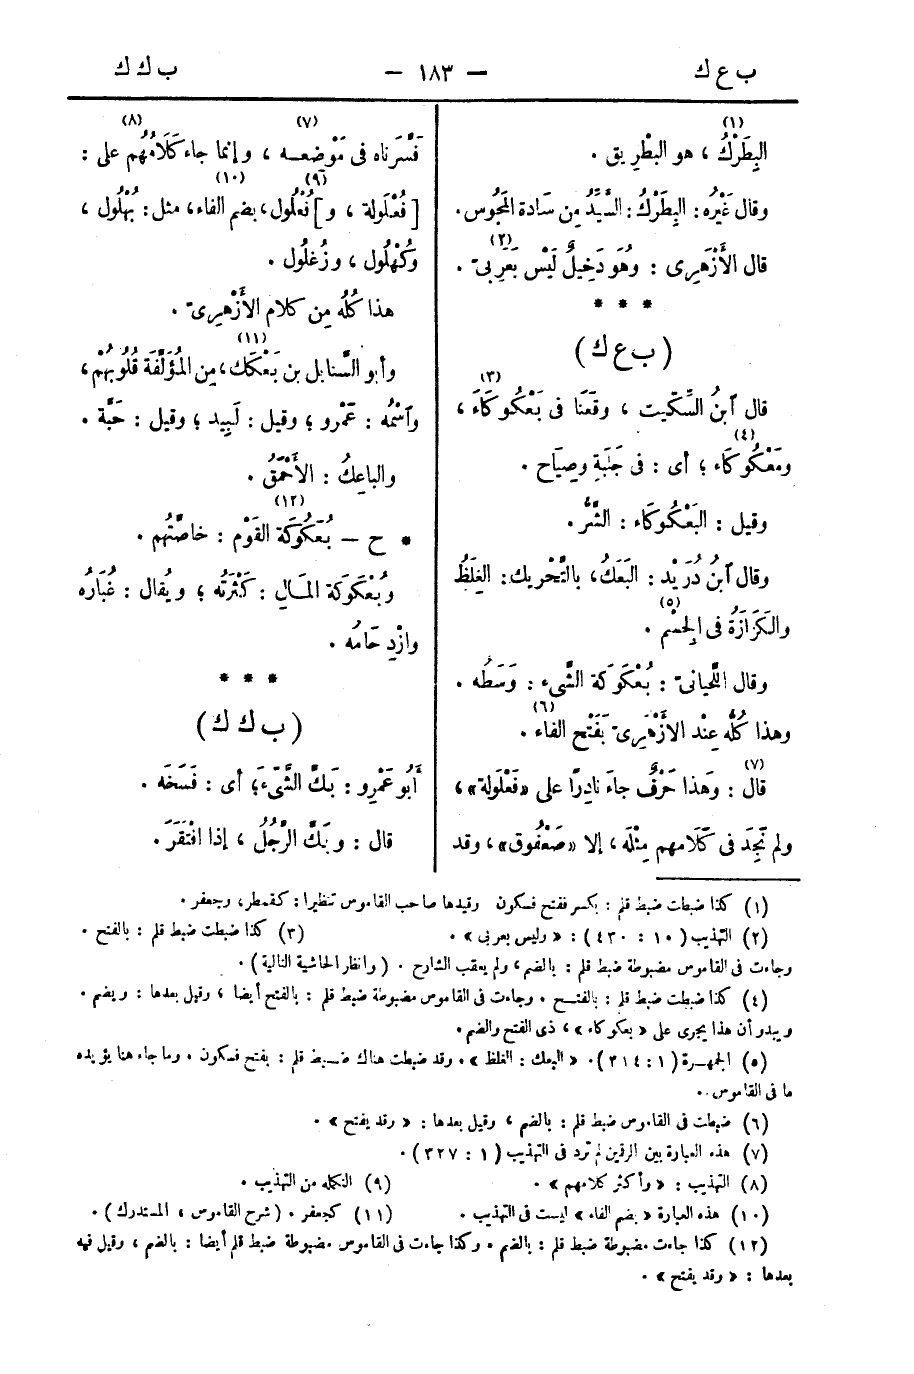 ب ع ك — ١٨٣ — ب ك ك
(١)
البِطَرْكُ ، هو البطْرِيق .
وقال غَيْرُه : البِطَرْكُ : السَّيِّدُ مِن سَادة المَجُوس.
(٢)
قال الأَزْهَرِى : وهُوَ دَخِيلٌ لَيْس بَعَرَبىّ .
* * *
( ب ع ك )
(٣)
قال ٱبنُ السِّكِّيت ، وقَعْنَا فى بَعْكُوكَاءَ ،
(٤)
ومَعْكُوكَاء ؛ أى : فى جَلَبَةٍ وصِيَاح .
وقيل : البَعْكُوكَاء : الشَّرُّ.
وقال ٱبنُ دُرَيْد : البَعَكُ ، بالتَّحْريك : الغِلَظُ
(٥)
والكَزَازَةُ فى الجِسْم .
وقال اللَّحيانىّ : بُعْكُوكَة الشَّىء : وَسَطُه .
(٦)
وهذا كُلُّه عِنْد الأَزْهَرِىّ بَفَتْح الفاء .
(٧)
قال : وهَذا حَرْفٌ جاءَ نادِرًا على «فَعْلُولة» ،
ولم نَجِد فى كَلَامهم مِثْلَه ، إلا «صَعْفُوق» ، وقد
(٧) (٨)
فَسَّرناه فى مَوْضعه ، وإنما جاء كَلَامُهُم على :
(٩) (١٠)
[ فُعْلُولة ، و ] فُعْلُول ، بضم الفاء ، مثل : بُهْلُول ،
وكُهْلُول ، وزُغلُول .
هذا كُلُّه مِن كلام الأَزْهَرِىّ .
(١١)
وأبو السَّنابل بن بَعْكَك ، مِن المُؤَلَّفَة قُلُوبُهُمْ ،
وٱسْمُه : عَمْرو ؛ وقيل : لَبِيد ؛ وقيل : حَبَّة .
والباعِكُ : الأَحْمَقُ .
(١٢)
* ح — بُعْكُوكَة القَوْم : خاصَّتُهم .
وبُعْكُوكَة المَـال : كَثْرَتُه ؛ ويُقال : غُبَارُه
وازْدِحَامُه .
* * *
( ب ك ك )
أَبُو عَمْرو : بَكَّ الشَّىْءَ ؛ أى : فَسَخَه .
قال : وبَكَّ الرَّجُلُ ، إذا افْتَقَرَ .
(١) كذا ضبطت ضبط قلم : بكسر ففتح فسكون وقيدها صاحب القاموس تنظيرا : كقمطر ، وجعفر .
(٢) التهذيب ( ١٠ : ٤٣٠ ) : « وليس بعربى » . (٣) كذا ضبطت ضبط قلم : بالفتح .
وجاءت فى القاموس مضبوطة ضبط قلم : بالضم ، ولم يعقب الشارح . ( وانظر الحاشية التالية ) .
(٤) كذا ضبطت ضبط قلم : بالفتـــح . وجاءت فى القاموس مضبوطة ضبط قلم : بالفتح أيضا ، وقيل بعدها : ويضم .
ويبدو أن هذا يجرى على « بعكوكاء » ، ذى الفتح والضم .
(٥) الجمهـرة ( ١ : ٣١٤ ) . « البعك : الغلظ » . وقد ضبطت هناك ضـبط قلم : بفتح فسكون . وما جاء هنا يؤيده
ما فى القاموس .
(٦) ضبطت فى القاموس ضبط قلم : بالضم ، وقيل بعدها : « وقد يفتح » .
(٧) هذه العبارة بين الرقين لم ترد فى التهذيب ( ١ : ٣٢٧ ) .
(٨) التهذيب : « وأكثر كلامهم » . (٩) التكملة من التهذيب .
(١٠) هذه العبارة « بضم الفاء » ليست فى التهذيب . (١١) كجعفر . ( شرح القاموس ، المستدرك ) .
(١٢) كذا جاءت مضبوطة ضبط قلم : بالضم . وكذا جاءت فى القاموس مضبوطة ضبط قلم أيضا : بالضم ، وقيل فيه
بعدها : « وقد يفتح » .